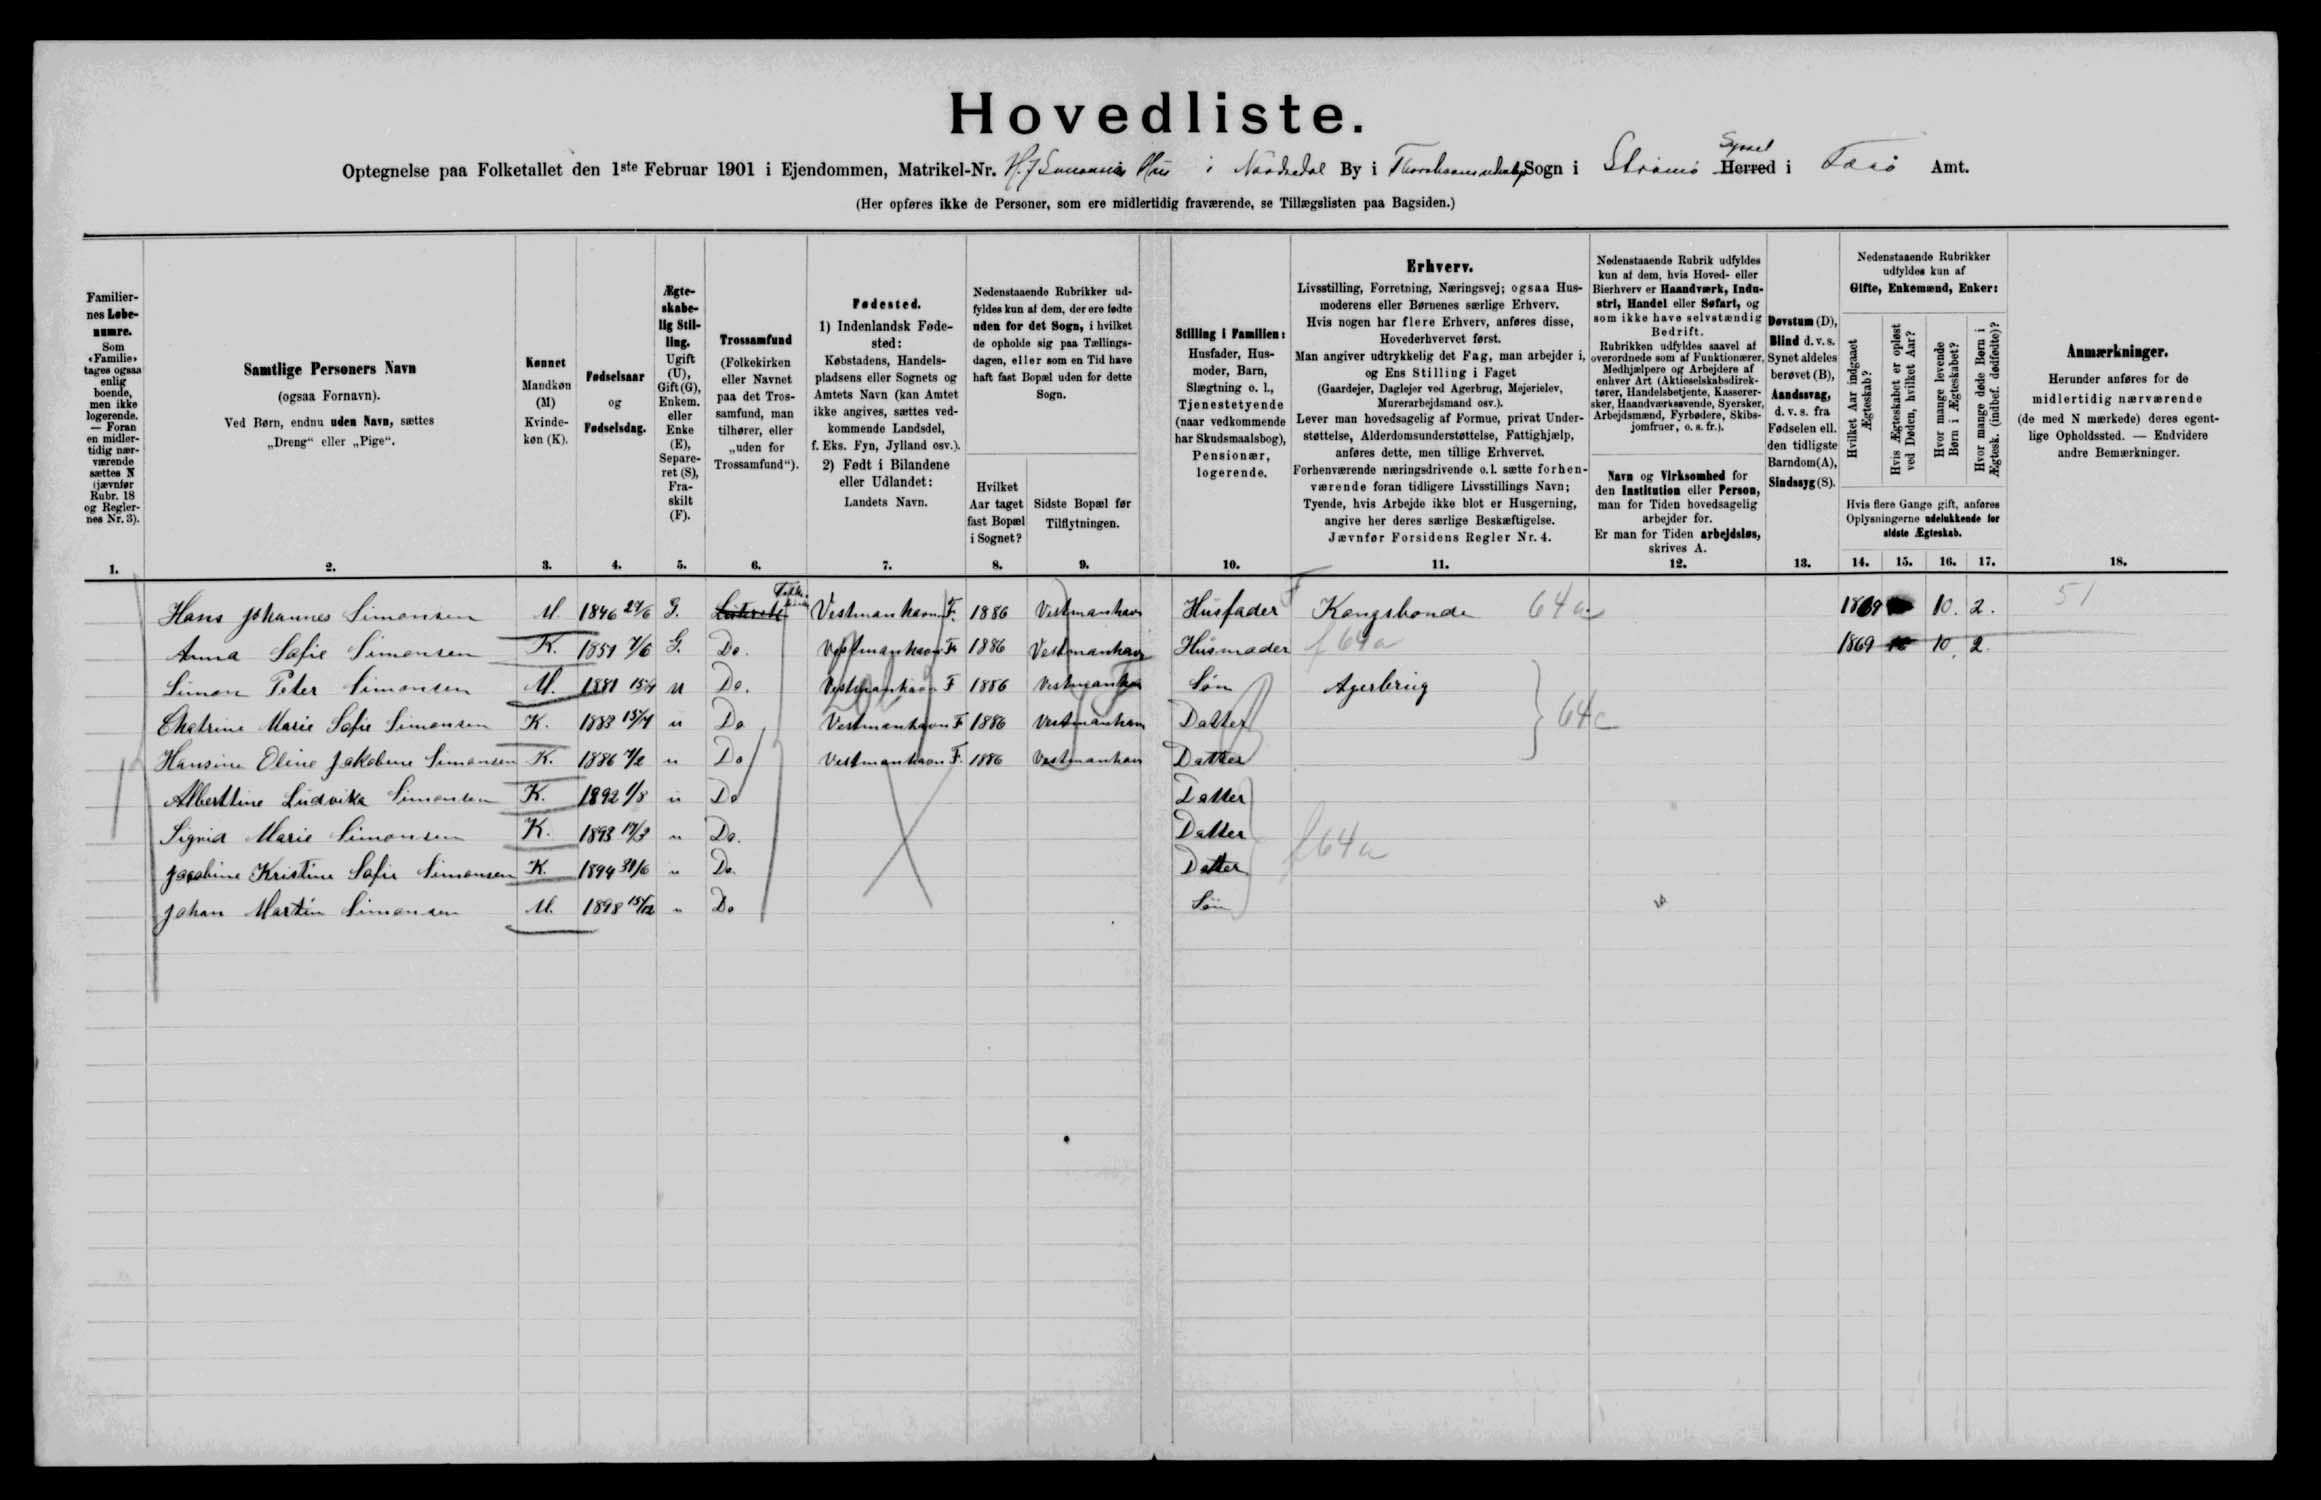 Hovedliste.
Optegnelse paa Folketallet den 1ste Februar 1901 i Ejendommen, Matrikel-Nr. H. J Simonsens Hus i Nordredal By i Thorshavns Sogn i Strømø Syssel Herred i Færø Amt.
(Her opføres ikke de Personer, som ere midlertidig fraværende, se Tillægslisten paa Bagsiden.)
Familiernes Løbenumre.
Som «Familie» tages ogsaa enlig boende, men ikke logerende. — Foran en midlertidig nærværende sættes N (jævnfør Rubr. 18 og Reglernes Nr. 3).
Samtlige Personers Navn
(ogsaa Fornavn).
Ved Børn, endnu uden Navn, sættes
„Dreng“ eller „Pige“.
Kønnet
Mandkøn (M)
Kvindekøn (K).
Fødselsaar
og
Fødselsdag.
Ægteskabelig Stilling.
Ugift (U), Gift (G), Enkem. eller Enke (E), Separeret (S), Fraskilt (F).
Trossamfund
(Folkekirken eller Navnet paa det Trossamfund, man tilhører, eller „uden for Trossamfund“).
Fødested.
1) Indenlandsk Fødested:
Købstadens, Handelspladsens eller Sognets og Amtets Navn (kan Amtet ikke angives, sættes vedkommende Landsdel, f. Eks. Fyn, Jylland osv.).
2) Født i Bilandene eller Udlandet:
Landets Navn.
Nedenstaaende Rubrikker udfyldes kun af dem, der ere fødte uden for det Sogn, i hvilket de opholde sig paa Tællingsdagen, eller som en Tid have haft fast Bopæl uden for dette Sogn.
Hvilket Aar taget fast Bopæl i Sognet?
Sidste Bopæl før Tilflytningen.
Stilling i Familien:
Husfader, Husmoder, Barn, Slægtning o. l., Tjenestetyende (naar vedkommende har Skudsmaalsbog), Pensionær, logerende.
Erhverv.
Livsstilling, Forretning, Næringsvej; ogsaa Husmoderens eller Børnenes særlige Erhverv.
Hvis nogen har flere Erhverv, anføres disse, Hovederhvervet først.
Man angiver udtrykkelig det Fag, man arbejder i, og Ens Stilling i Faget
(Gaardejer, Daglejer ved Agerbrug, Mejerielev, Murerarbejdsmand osv.).
Lever man hovedsagelig af Formue, privat Understøttelse, Alderdomsunderstøttelse, Fattighjælp, anføres dette, men tillige Erhvervet.
Forhenværende næringsdrivende o.l. sætte forhenværende foran tidligere Livsstillings Navn; Tyende, hvis Arbejde ikke blot er Husgerning, angive her deres særlige Beskæftigelse.
Jævnfør Forsidens Regler Nr. 4.
Nedenstaaende Rubrik udfyldes kun af dem, hvis Hoved- eller Bierhverv er Haandværk, Industri, Handel eller Søfart, og som ikke have selvstændig Bedrift.
Rubrikken udfyldes saavel af overordnede som af Funktionærer, Medhjælpere og Arbejdere af enhver Art (Aktieselskabsdirektører, Handelsbetjente, Kasserersker, Haandværkssvende, Syersker, Arbejdsmænd, Fyrbødere, Skibsjomfruer, o. s. fr.).
Navn og Virksomhed for den Institution eller Person, man for Tiden hovedsagelig arbejder for.
Er man for Tiden arbejdsløs, skrives A.
Døvstum (D), Blind d. v. s. Synet aldeles berøvet (B), Aandssvag, d. v. s. fra Fødselen ell. den tidligste Barndom (A), Sindssyg (S).
Nedenstaaende Rubrikker udfyldes kun af
Gifte, Enkemænd, Enker:
Hvilket Aar indgaaet Ægteskab?
Hvis Ægteskabet er opløst ved Døden, hvilket Aar?
Hvor mange levende Børn i Ægteskabet?
Hvor mange døde Børn i Ægtesk. (indbef. dødfødte)?
Hvis flere Gange gift, anføres Oplysningerne udelukkende for sidste Ægteskab.
Anmærkninger.
Herunder anføres for de midlertidig nærværende (de med N mærkede) deres egentlige Opholdssted. — Endvidere andre Bemærkninger.
1. 2. 3. 4. 5. 6. 7. 8. 9. 10. 11. 12. 13. 14. 15. 16. 17. 18.
Hans Johannes Simonsen M. 1846 24/6 G. Vestmanhavn F. 1886 Vestmanhavn Husfader Kongsbonde 64a 1869 10. 2. 51
Anna Sofie Simonsen K. 1851 7/6 G. Do. Vestmanhavn F. 1886 Vestmanhavn Husmoder f 64a 1869 10. 2.
Simon Peter Simonsen M. 1881 15/4 u Do. Vestmanhavn F 1886 Vestmanhavn Søn Agerbrug
Chatrine Marie Sofie Simonsen K. 1883 15/4 u Do Vestmanhavn F 1886 Vestmanhavn Datter 64c
Hansine Oline Jakobine Simonsen K. 1886 7/2 u Do Vestmanhavn F. 1886 Vestmanhavn Datter
Alberttine Ludvika Simonsen K. 1892 1/8 u Do Datter
Sigrid Marie Simonsen K. 1893 17/3 u Do. Datter f 64a
Jacobine Kristine Sofie Simonsen K. 1894 30/6 u Do. Datter
Johan Martin Simonsen M. 1898 15/12 u Do Søn